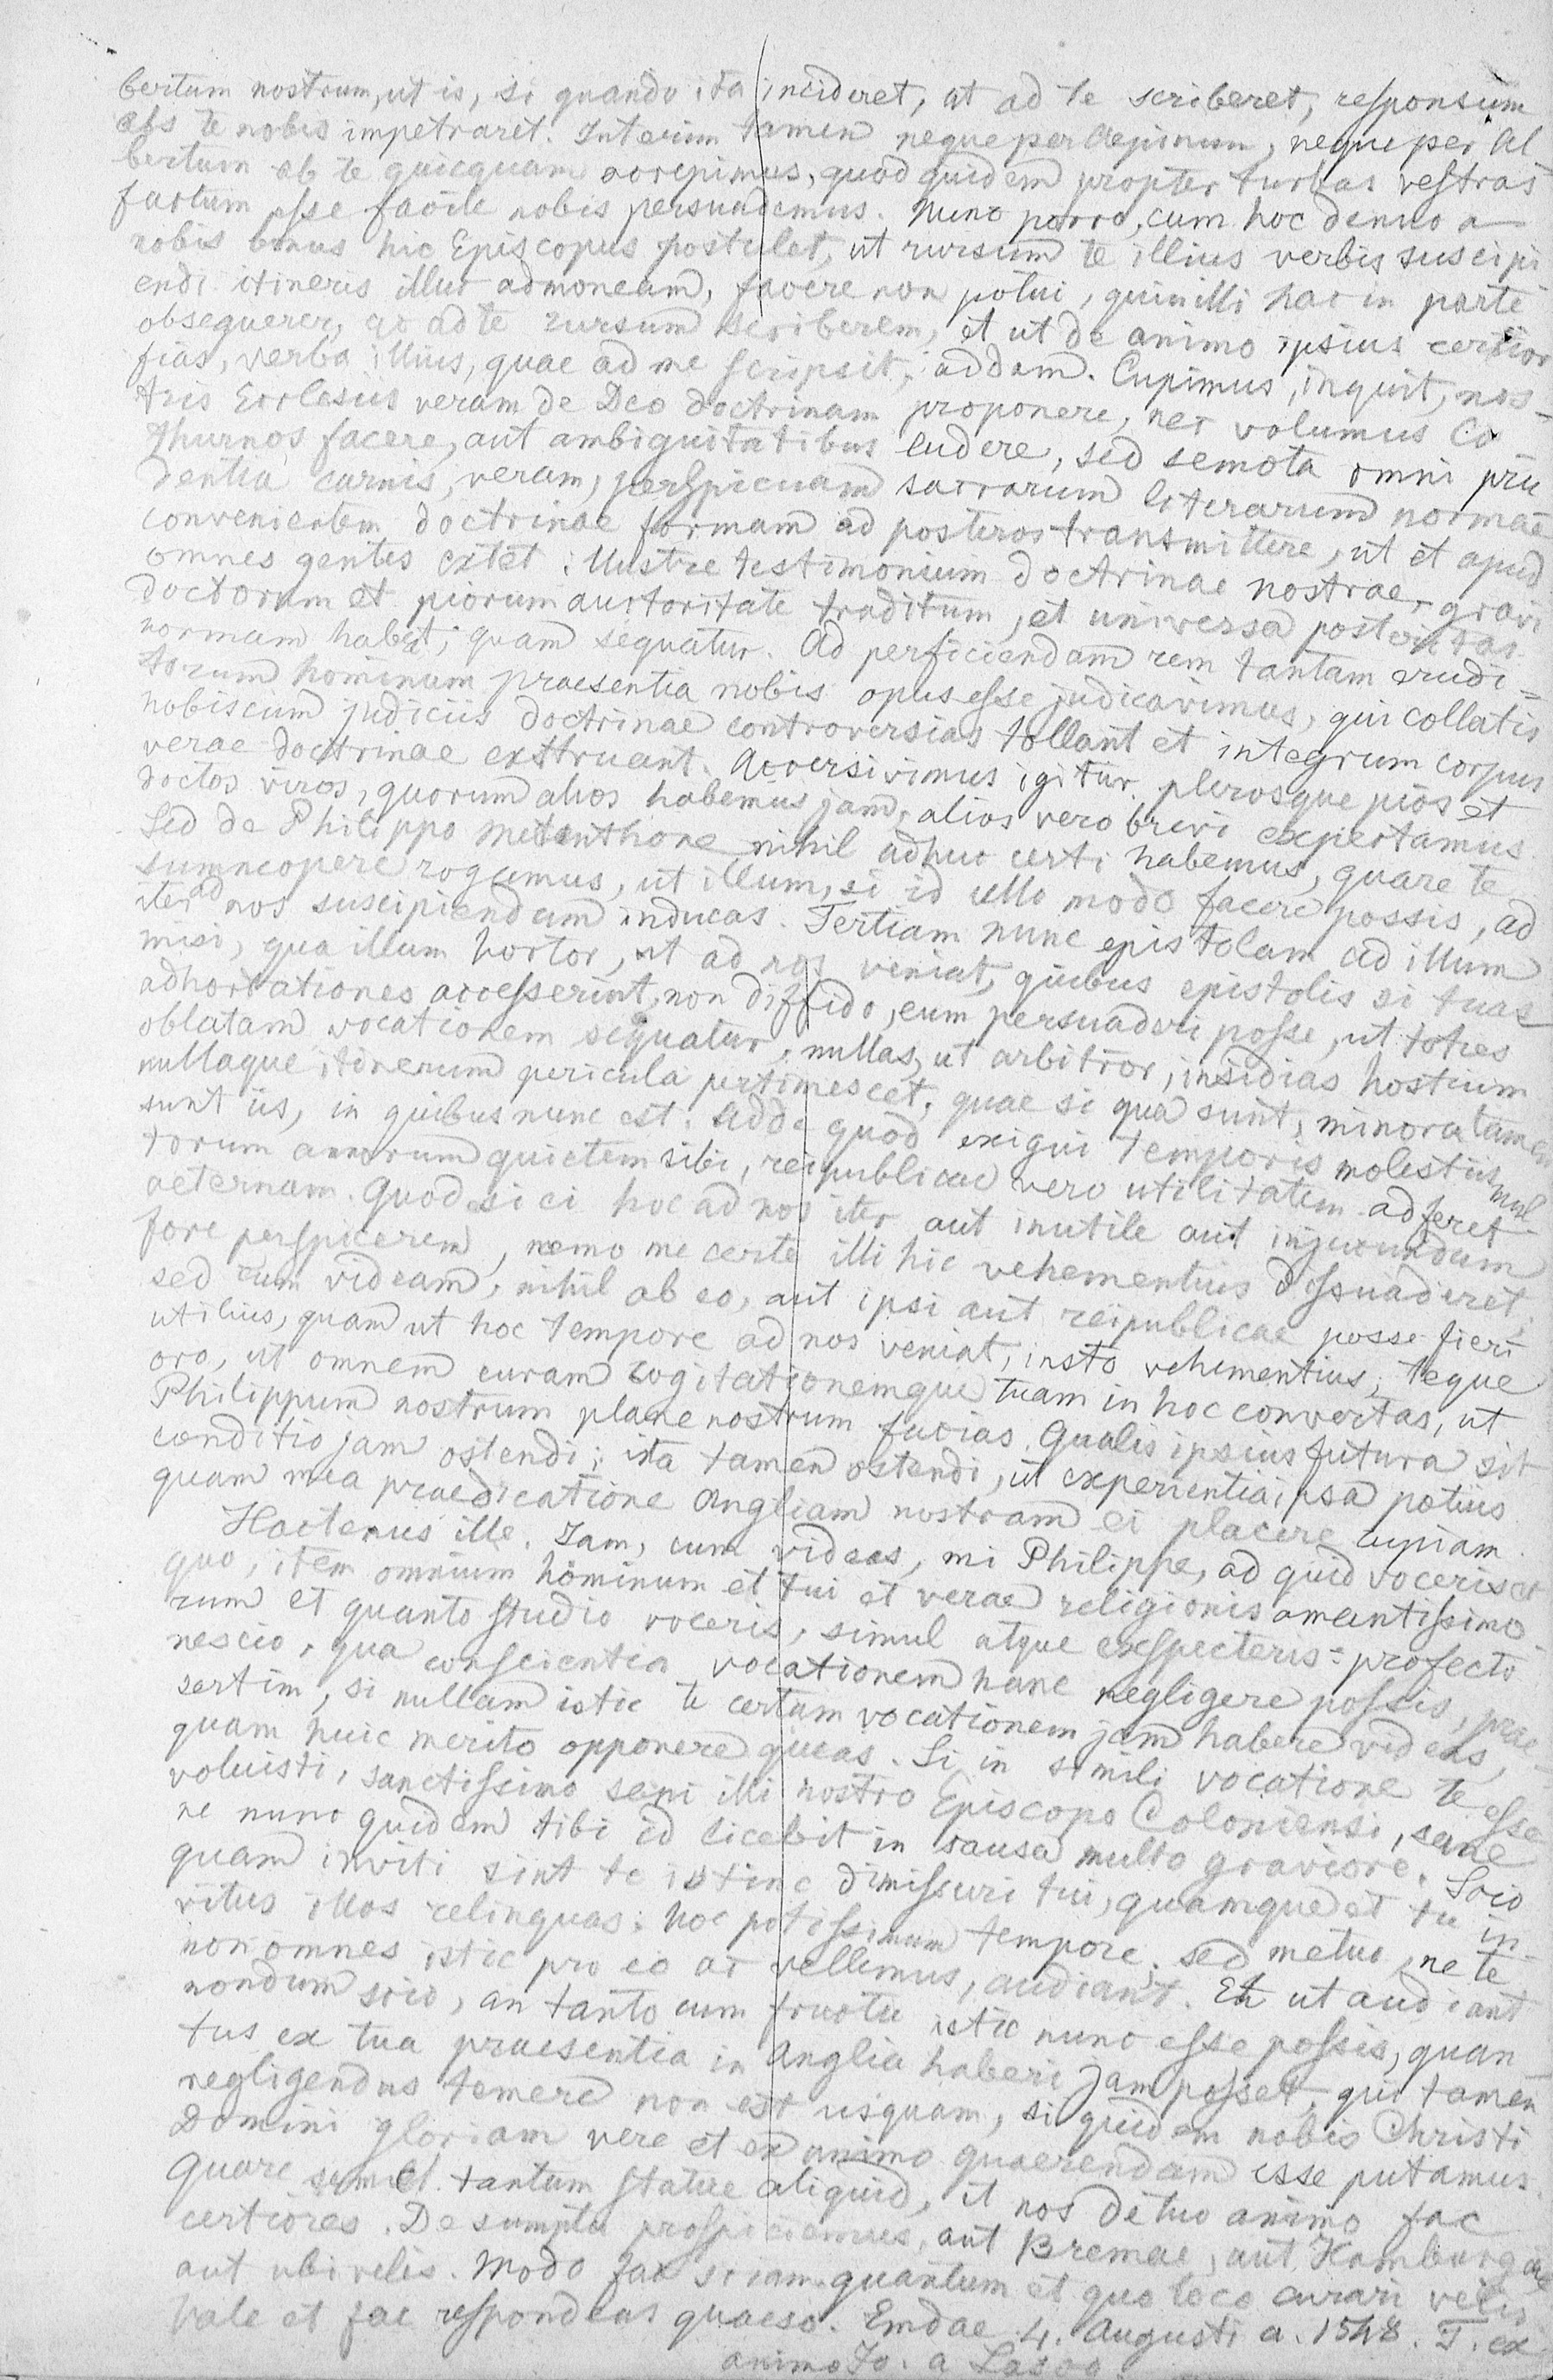 bertum nostrum, ut is, si quando ita incideret, ut ad te scriberet, responsum
abs te nobis impetraret. Interim tamen neque per Aepinum, neque per Al
bertum ab te quicquam accepimus, quod quidem propter turbas vestras
factum esse facile nobis persuademus. Nunc porro, cum hoc denuo a
nobis bonus hic Episcopus postulet, ut rursum te illius verbis suscipi
endi itineris illuc admoneam, facere non potui, quin illi hac in parte
obsequerer, ac ad te rursum scriberem, et ut de animo ipsius certior
fias, verba illius, quae ad me scripsit, addam. Cupimus, inquit, nos-
tris Ecclesiis veram de Deo doctrinam proponere, nec volumus Co
thurnos facere, aut ambiguitatibus ludere, sed semota omni pru
dentia carnis, veram, perspicuam sacrarum literarum normae
convenientem doctrinae formam ad posteros transmittere, ut et apud
omnes gentes extet illustre testimonium doctrinae nostrae, gravi
doctorum et piorum auctoritate traditum, et universa posteritas
normam habeat, quam sequatur. Ad perficiendam rem tantam erudi=
torum hominum praesentia nobis opus esse judicavimus, qui collatis
nobiscum judiciis doctrinae controversias tollant et integrum corpus
verae doctrinae exstruant. Accersivimus igitur plerosque pios et
doctos viros, quorum alios habemus jam, alios vero brevi expectamus.
Sed de Philippo Melanthone nihil adhuc certi habemus, quare te
summeopere rogamus, ut illum, si id ullo modo facere possis, ad
iter ad nos suscipiendum inducas. Tertiam nunc epistolam ad illum
misi, qua illum hortor, ut ad nos veniat, quibus epistolis si tuae
adhortationes accesserint, non diffido, eum persuaderi posse, ut toties
oblatam vocationem sequatur, nullas, ut arbitror, insidias hostium
nullaque itinerum pericula pertimescet, quae si qua sunt, minora tamen
sunt iis, in quibus nunc est. Adde quod exigui temporis molestiis mul
torum annorum quietem sibi, reipublicae vero utilitatem adferet
aeternam. Quod si ei hoc ad nos iter aut inutile aut injucundum
fore perspicerem, nemo me certe illi hic vehementius dissuaderet,
sed cum videam, nihil ab eo, aut ipsi aut reipublicae posse fieri
utilius, quam ut hoc tempore ad nos veniat, insto vehementius, teque
oro, ut omnem curam cogitationemque tuam in hoc convertas, ut
Philippum nostrum plane nostrum facias. Qualis ipsius futura sit
conditio jam ostendi; ita tamen ostendi, ut experientia ipsa potius
quam mea praedicatione Angliam nostram ei placere cupiam.
Hactenus ille. Jam, cum videas, mi Philippe, ad quid voceris et
quo, item omnium hominum et tui et verae religionis amantissimo
rum et quanto studio voceris, simul atque exspecteris: profecto
nescio, qua conscientia vocationem hanc negligere possis, prae-
sertim, si nullam istic te certam vocationem jam habere videas,
quam huic merito opponere queas. Si in simili vocatione te esse
voluisti, sanctissimo seni illi nostro Episcopo Coloniensi, sane
ne nunc quidem tibi id licebit in causa multo graviore. Scio
quam inviti sint te istinc dimissuri tui, quamque et tu in-
vitus illos relinquas: hoc potissimum tempore; sed metuo, ne te
non omnes istic pro eo ac vellemus, audiant. Et ut audiant
nondum scio, an tanto cum fructu istic nunc esse possis, quan
tus ex tua praesentia in Anglia haberi jam posset, qui tamen
negligendus temere non est usquam, si quidem nobis Christi
Domini gloriam vere et ex animo quaerendam esse putamus.
Quare semel tantum statue aliquid, et nos de tuo animo fac
certiores. De sumptu prospiciemus, aut Bremae, aut Hamburgae
aut ubi velis. Modo fac sciam quantum et quo loco curari velis
Vale et fac respondeas quaeso. Emdae 4. Augusti a. 1548. T. ex
animo Jo. a Lasco.